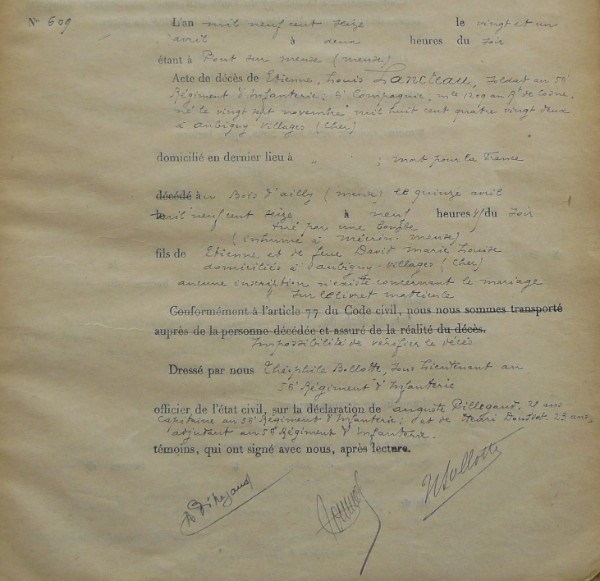 N° 609
L'an mil neuf cent seize le vingt et un
avril à deux heures du soir
étant à Pont sur meuse (meuse)
Acte de décès de Etienne, Louis Lancleau, soldat au 56e
Régiment d'Infanterie, 3e Compagnie, mle 1200 au Rt de Cosne,
né le vingt sept novembre mil huit cent quatre vingt deux
à aubigny villages (Cher)
domicilié en dernier lieu à ; mort pour la France
décédé au Bois d'ailly (meuse) le quinze avril
mil neuf cent seize à neuf heures du soir
tué par une bombe
(inhumé à mécrin. meuse)
fils de Etienne et de feue David Marie Louise
domiciliés à aubigny-villages (Cher)
aucune inscription n'existe concernant le mariage
sur livret matricule
Conformément à l'article 77 du Code civil, nous nous sommes transporté
auprès de la personne décédée et assuré de la réalité du décès.
Impossibilité de vérifier le décès
Dressé par nous Théophile Bollotte, sous Lieutenant au
56e Régiment d'Infanterie
officier de l'état civil, sur la déclaration de auguste Billegaud, ans
Capitaine au 56e Régiment d'Infanterie; et de Henri 23 ans,
adjudant au 56e Régiment d'Infanterie.
témoins, qui ont signé avec nous, après lecture.